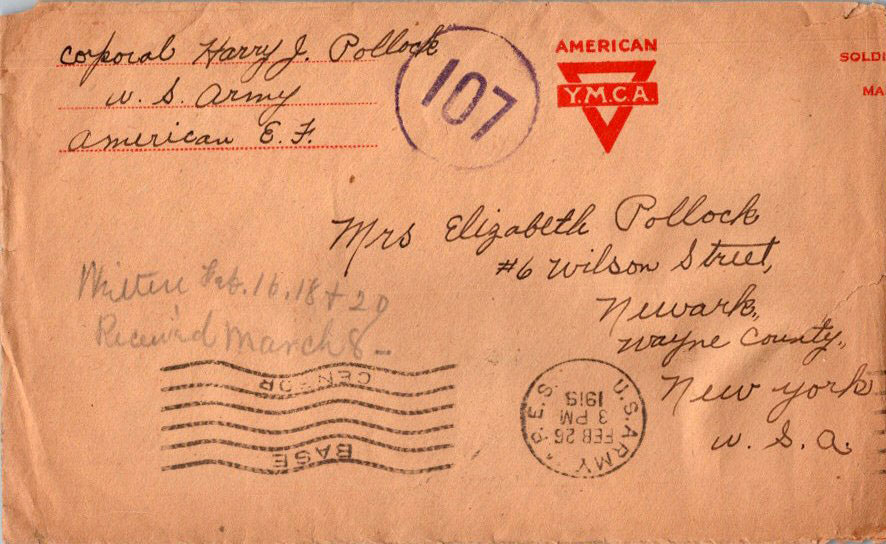 Corporal Harry J. Pollock
U. S. Army
American E. F.
107
AMERICAN
Y.M.C.A.
SOLDI
MA
Mrs Elizabeth Pollock
#6 Wilson Street,
Newark,
Wayne County,
New York
U. S. A.
Written Feb. 16, 18 + 20
Received March 8-
BASE
CENSOR
U.S. ARMY P.E.S.
FEB 26
3 PM